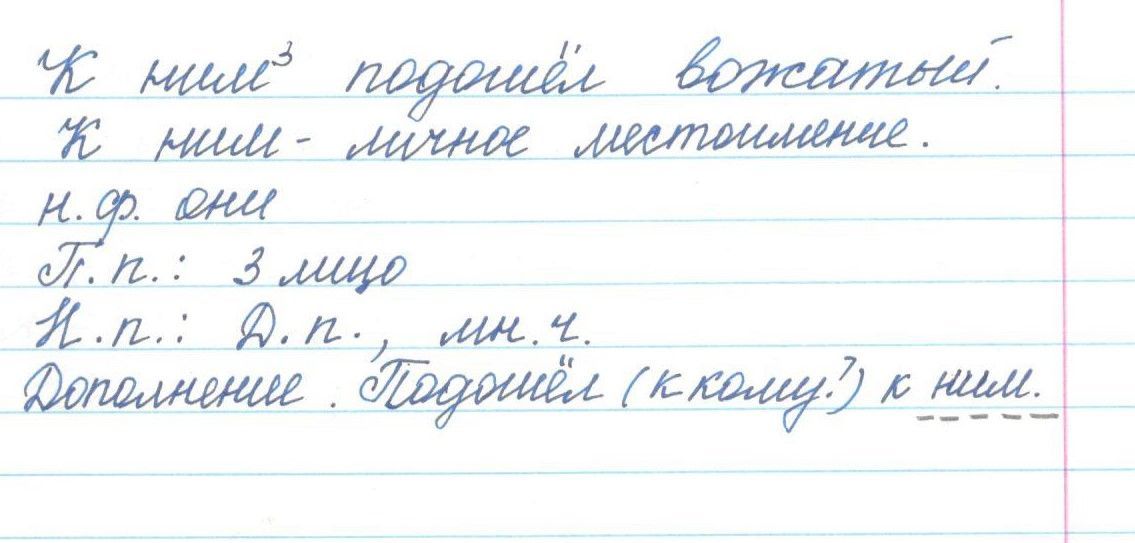 К ним³ подошёл вожатый.
К ним - личное местоимение.
н.ф. они
П.п.: 3 лицо
Н.п.: Д.п., мн.ч.
Дополнение. Подошёл (к кому?) к ним.